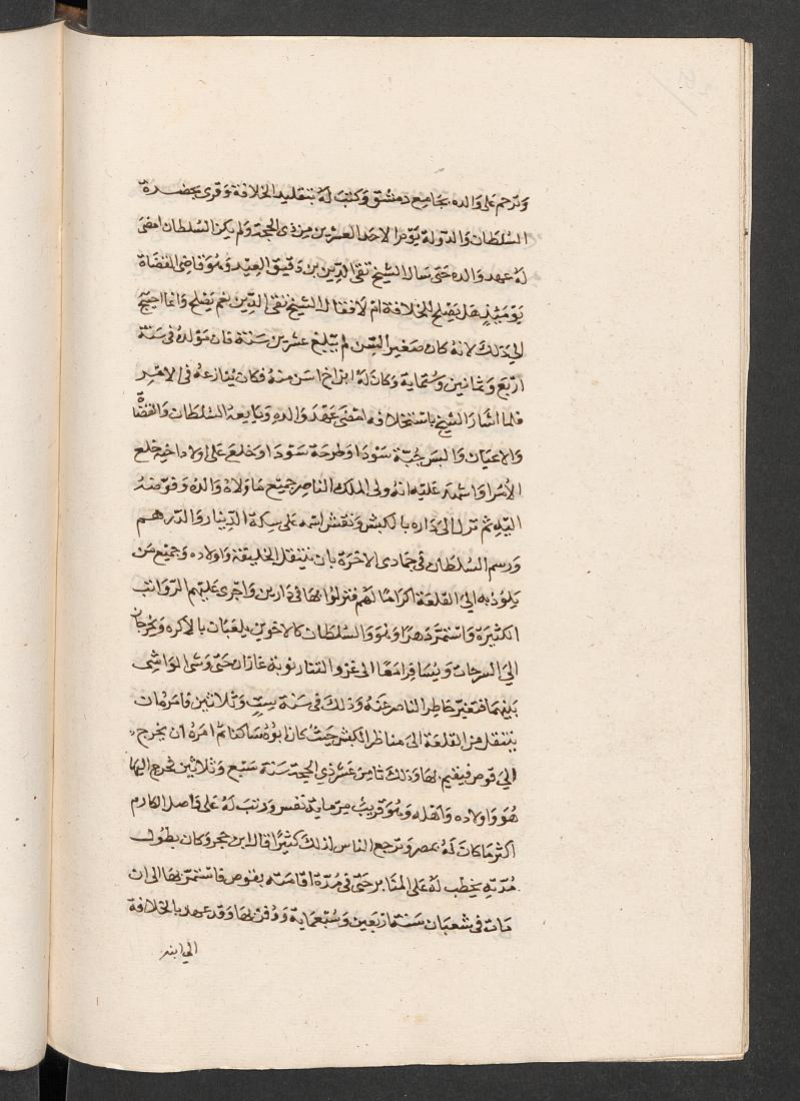 وترحم على والده بجامع دمشق وكتب له بتقليد الخلافة وقرى بحضرة
السلطان والدولة يوم الاحد العشرين من ذى الحجة ولم يكن السلطان امضى
له عهد والده حتى سال الشيخ تقى الدين بن دقيق العيد وهو قاضى القضاة
يوميذ هل يصلح للخلافة ام لا فقال الشيخ تقى الدين نعم يصلح وانما احتيج
الى ذلك لانه كان صغير السن لم يبلغ عشرين سنة فان مولده فى سنة
اربع وثمانين وستماية وكان له ابن اخ اسن منه فكان ينازعه فى الامر
فلما اشار الشيخ باستخلافه امضى عهد والده وبايعه السلطان والقضاة
والاعيان والبس جبة سودا وطرحة سودا وخلع على اولاد اخيه خلع
الامرا واشهد عليه انه ولى الملك الناصر جميع ما ولاه والده وفوضه
اليه ثم نزل الى داره بالكبش ونقش اسمه على سكة الدينار والدرهم
ورسم السلطان فى جمادى الاخرة بان ينتقل الخليفة واولاده وجميع من
يلوذ به الى القلعة اكراما لهم فنزلوا بها فى دارين واجرى عليهم الرواتب
الكثيرة واستمر دهرا وهو والسلطان كالاخوين يلعبان بالاكره ويخرجان
الى السرحات ويسافرا معا الى غزو التتار نوبة غازان حتى وشى الواشى
بينهما فتغير خاطر الناصر عنه وذلك فى سنة ست وثلاثين فامر بان
ينتقل من القلعة الى مناظر الكبش حيث كان ابوه ساكنا ثم امره ان يخرج
الى قوص فيقيم بها وذلك ثامن عشر ذي الحجة سنة سبع وثلاثين فخرج اليها
هو واولاده واهله وهو قريب من ماية نفس ورتب له على واصل الكارم
اكثر ما كان له بمصر وترجع الناس لذلك كثيرا قال ابن حجر وكان بطول
مدته يخطب له على المنابر حتى فى مدة اقامته بقوص فاستمر بها الى ان
مات فى شعبان سنة اربعين وسبعماية ودفن بها وقد عهد بالخلافة
الى ابنه